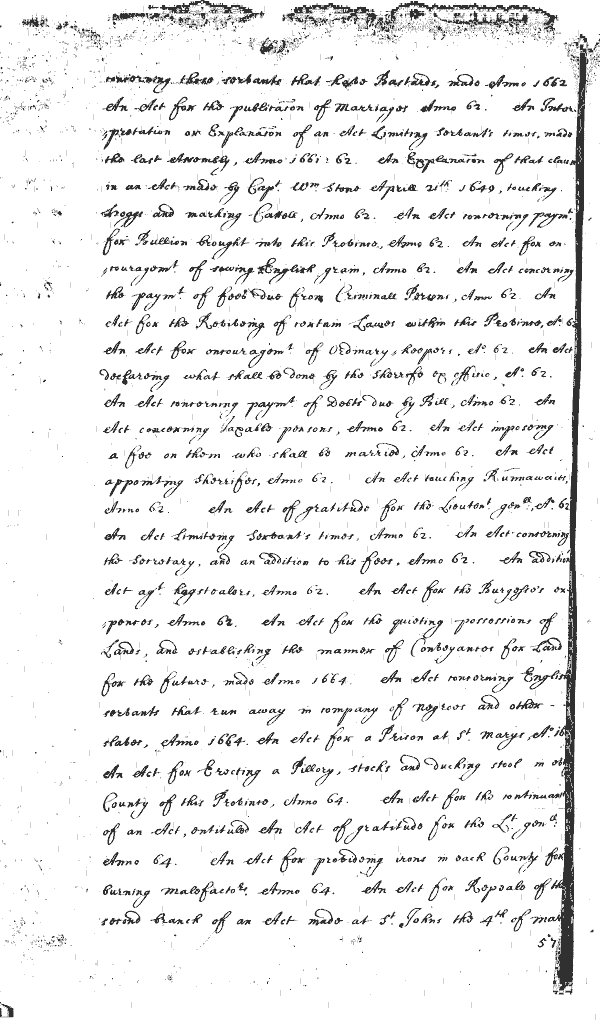 concerning those servants that have Bastards, made Anno 1662
An Act for the publicaĩon of Marriages Anno 62. An Inter-
,pretation or Explanaĩon of an Act Limiting servants times, made
the last Assembly, Anno 1661: 62. An Explanaĩon of that claus
in an Act made by Capt. Wm Stone Aprill 21th 1649, touching
hoggs and marking Cattell, Anno 62. An Act concerning paymt.
for Bullion brought into this Province, Anno 62. An Act for en-
,couragemt. of sowing English grain, Anno 62. An Act concerning
the paymt. of fees due from Criminall Persons, Anno 62. An
Act for the Reviveing of certain Lawes within this Province, Ao. 62
An Act for encouragemt. of Ordinary, keepers, Ao. 62. An Act
declareing what shall be done by the Sherrife ex officio, Ao. 62.
An Act concerning paymt. of Debts due by Bill, Anno 62. An
Act concerning Taxable persons, Anno 62. An Act imposeing
a fee on them who shall be married, Anno 62. An Act
appointing Sherrifes, Anno 62. An Act touching Runnawaies,
Anno 62. An Act of gratitude for the Lieutent. genll, Ao. 62
An Act Limiteing Servants times, Anno 62. An Act concerning
the Secretary, and an addition to his fees, Anno 62. An addition
Act agt. hggstealers, Anno 62. An Act for the Burgesse's ex-
,pences, Anno 62. An Act for the quieting possessions of
Lands, and establishing the manner of Conveyances for Land
for the future, made Anno 1664. An Act concerning English
servants that run away in company of negroes and other - -
slaves, Anno 1664. An Act for a Prison at St. Marys, Ao. 16
An Act for Erecting a Pillory, stocks and ducking stool in
County of this Province, Anno 64. An Act for the continuance
of an Act, entituled An Act of gratitude for the Lt. genll:
Anno 64. An Act for provideing irons in each County for
burning malefactors. Anno 64. An Act for Repeale of the
second branch of an Act made at St. Johns the 4th of
57